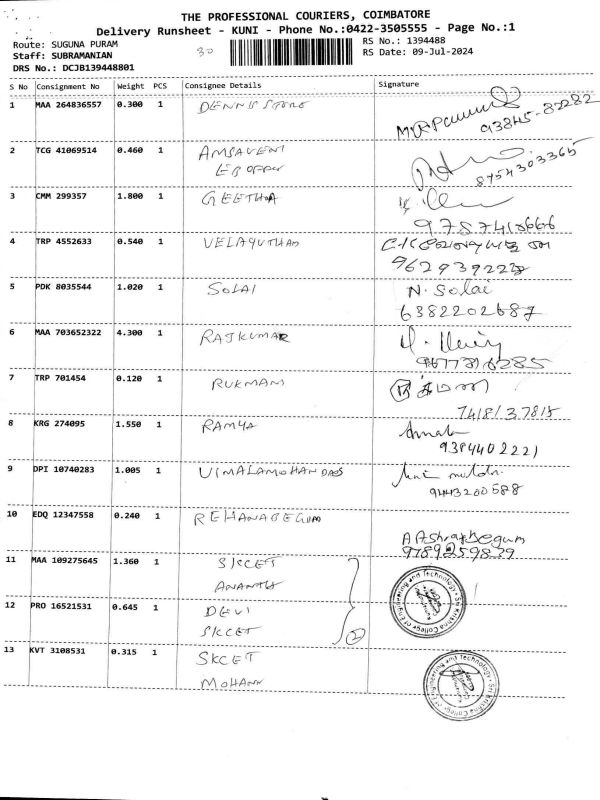 THE PROFESSIONAL COURIERS, COIMBATORE
Delivery Runsheet - KUNI - Phone No.:0422-3505555 - Page No.:1
Route: SUGUNA PURAM 30 RS No.: 1394488
Staff: SUBRAMANIAN RS Date: 09-Jul-2024
DRS No.: DCJB139448801
S No Consignment No Weight PCS Consignee Details Signature
1 MAA 264836557 0.300 1 DENNIS STORE
93845-87282
2 TCG 41069514 0.460 1 AMSAVENI
EB OFFICE
8754303365
3 CMM 299357 1.800 1 GEETHA
4 TRP 4552633 0.540 1 VELAYUTHAM
5 PDK 8035544 1.020 1 SOLAI N. Solai
6382202687
6 MAA 703652322 4.300 1 RAJKUMAR
7 TRP 701454 0.120 1 RUKMANI
7418137815
8 KRG 274095 1.550 1 RAMYA
9384402221
9 DPI 10740283 1.005 1 VIMALAMOHANDAS
9443200588
10 EDQ 12347558 0.240 1 REHANABEGUM
A Ashrafbegum
9789259829
11 MAA 109275645 1.360 1 SKCET
ANANTH
12 PRO 16521531 0.645 1 DEVI
SKCET 2
Sri Krishna College of Engineering and Technology
13 KVT 3108531 0.315 1 SKCET
MOHAN
Sri Krishna College of Engineering and Technology